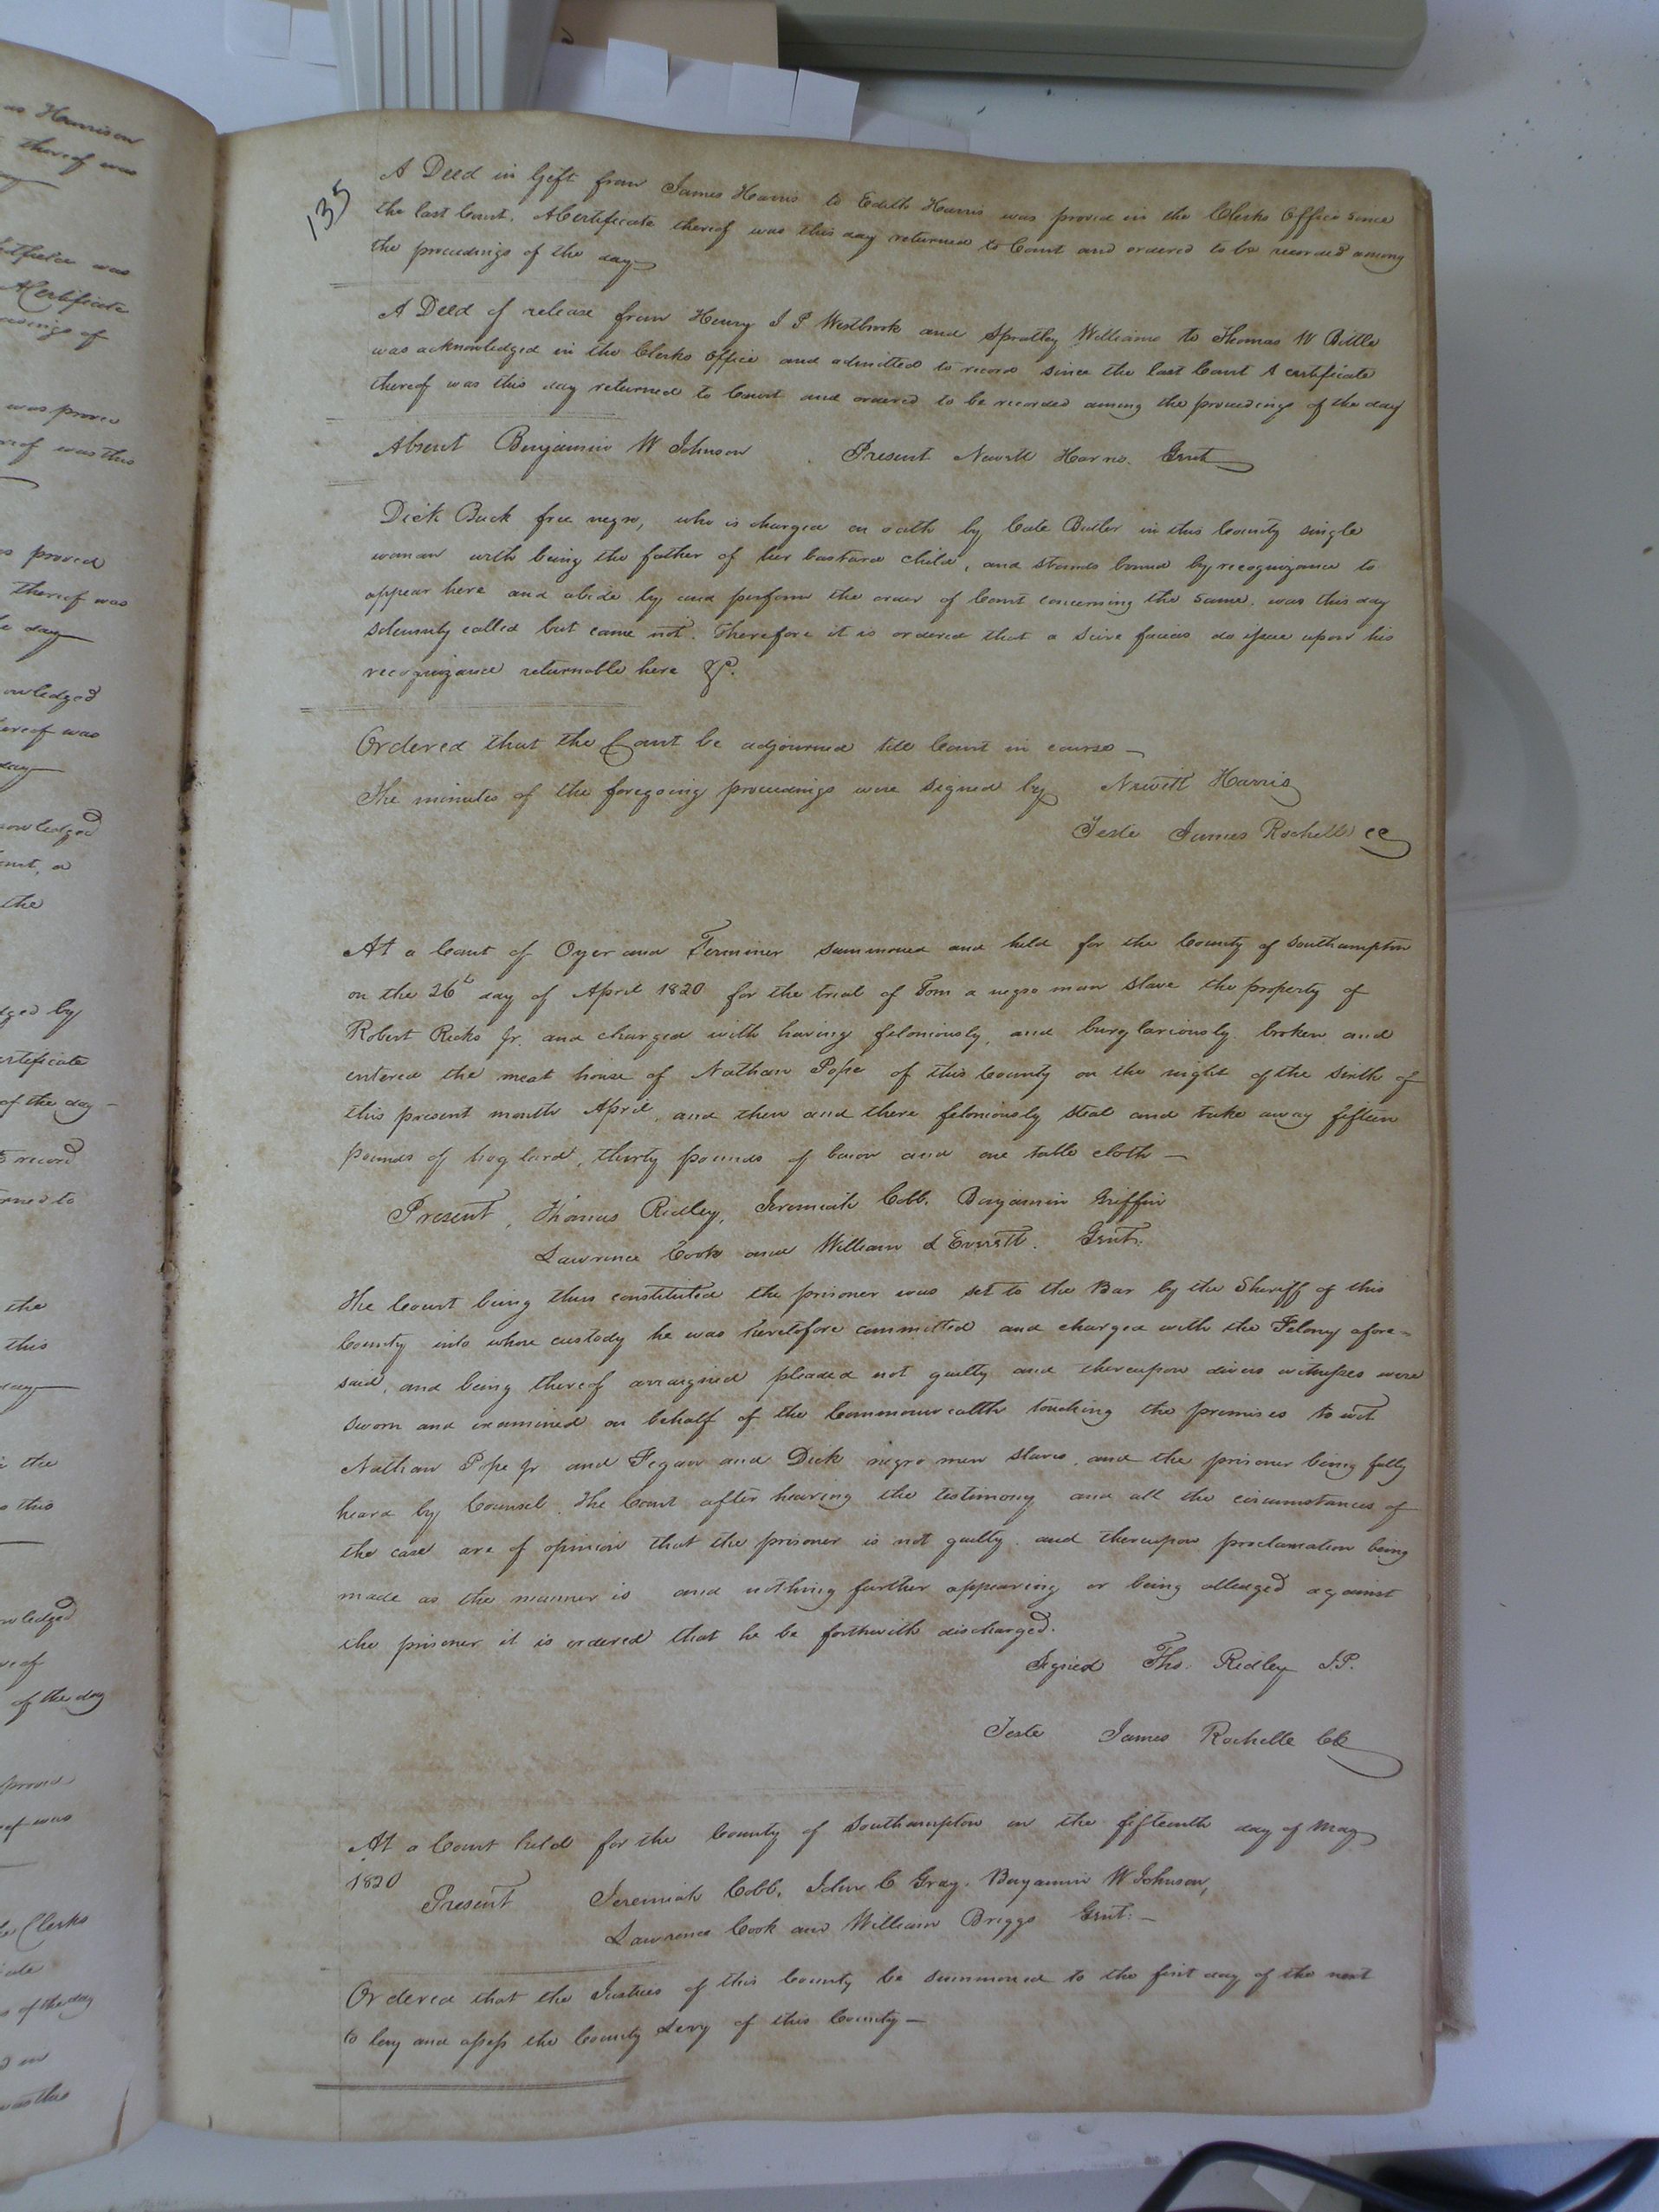 as Harrison
thereof was
A Certificate
was proved
thereof was this
proved
thereof was
day
acknowledged
thereof was
day
acknowledged
Court, a
the
by
Certificate
of the day
record
returned to
the
this
day
the
this
acknowledged
of the day
proved
Clerks
of the day
was this
135
A Deed in Gift from James Harris to Edith Harris was proved in the Clerks Office since
the last Court. A Certificate thereof was this day returned to Court and ordered to be recorded among
the proceedings of the day
A Deed of release from Henry J P Westbrook and Spratley Williams to Thomas W Bittle
was acknowledged in the Clerks office and admitted to record since the last Court A certificate
thereof was this day returned to Court and ordered to be recorded among the proceedings of the day
Absent Benjamin W Johnson Present Newitt Harris. Gent
Dick Buck free negro, who is charged on oath by Cate Butler in this County single
woman with being the father of her bastard child, and stands bound by recognizance to
appear here and abide by and perform the order of Court concerning the same, was this day
solemnly called but came not. Therefore it is ordered that a Scire facias do issue upon his
recognizance returnable here &c.
Ordered that the Court be adjourned till Court in course
The minutes of the foregoing proceedings were signed by Newitt Harris
Teste James Rochelle CC
At a Court of Oyer and Terminer summoned and held for the County of Southampton
on the 26th day of April 1820 for the trial of Tom a negro man slave the property of
Robert Ricks Jr. and charged with having feloniously, and burglariously broken and
entered the meat house of Nathan Pope of this County on the night of the sixth of
this present month April, and then and there feloniously steal and take away fifteen
pounds of hog lard, thirty pounds of bacon and one table cloth —
Present, Thomas Ridley, Jeremiah Cobb, Benjamin Griffin
Lawrence Cook and William d Everett. Gent.
The Court being thus constituted the prisoner was set to the Bar by the Sheriff of this
County into whose custody he was heretofore committed and charged with the Felony afore=
said, and being thereof arraigned pleaded not guilty and thereupon divers witnesses were
sworn and examined on behalf of the Commonwealth touching the premises to wit
Nathan Pope Jr and and Dick negro men slaves, and the prisoner being fully
heard by Counsel. The Court after hearing the testimony and all the circumstances of
the case are of opinion that the prisoner is not guilty. and thereupon proclamation being
made as the manner is and nothing further appearing or being alledged against
the prisoner it is ordered that he be forthwith discharged.
Signed Tho. Ridley J.P.
Teste James Rochelle Clk
At a Court held for the County of Southampton on the fifteenth day of May
1820
Present Jeremiah Cobb, John C Gray. Benjamin W Johnson,
Lawrence Cook and William Briggs Gent. —
Ordered that the Justices of this County be summoned to the first day of the next
to lay and assess the County Levy of this County —